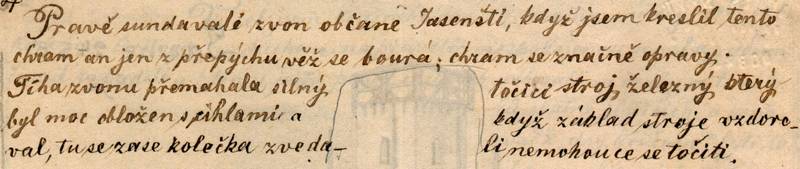 Právě sundavali zvon občané Jasenští, když jsem kreslil tento
chram an jen z přepýchu věž se bourá; chram se značně opravy.
Tíha zvonu přemahala silný točící stroj železný který
byl moc obložen s cihlami a když základ stroje vzdoro-
val, tu se zase kolečka zveda- li nemohouce se točiti.